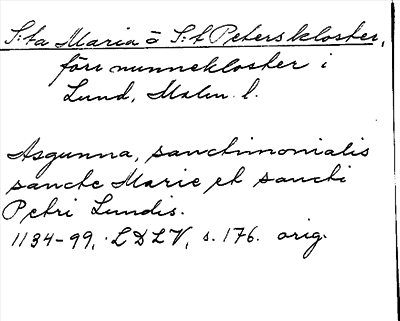 S:ta Maria o S:t Peters kloster,
förr nunnekloster i
Lund, Malm. l.
Asgunna, sanctimonialis
sancte Marie et sancti
Petri Lundis.
1134-99, LDLV, s. 176. orig.